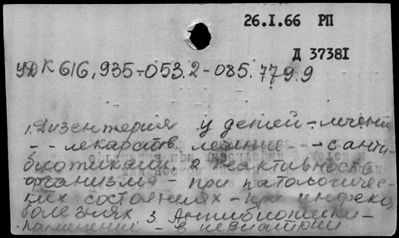 26.I.66 РП
Д 37381
УДК 616,935-053.2-085.779.9
1. Дизентерия у детей - лечен
- - лекарств. лечение - - с анти
биотиками. 2. Реактивность
организма - при патологичес
ких состояниях - при инфекц.
болезнях 3. Антибиотики -
применение - в педиатрии